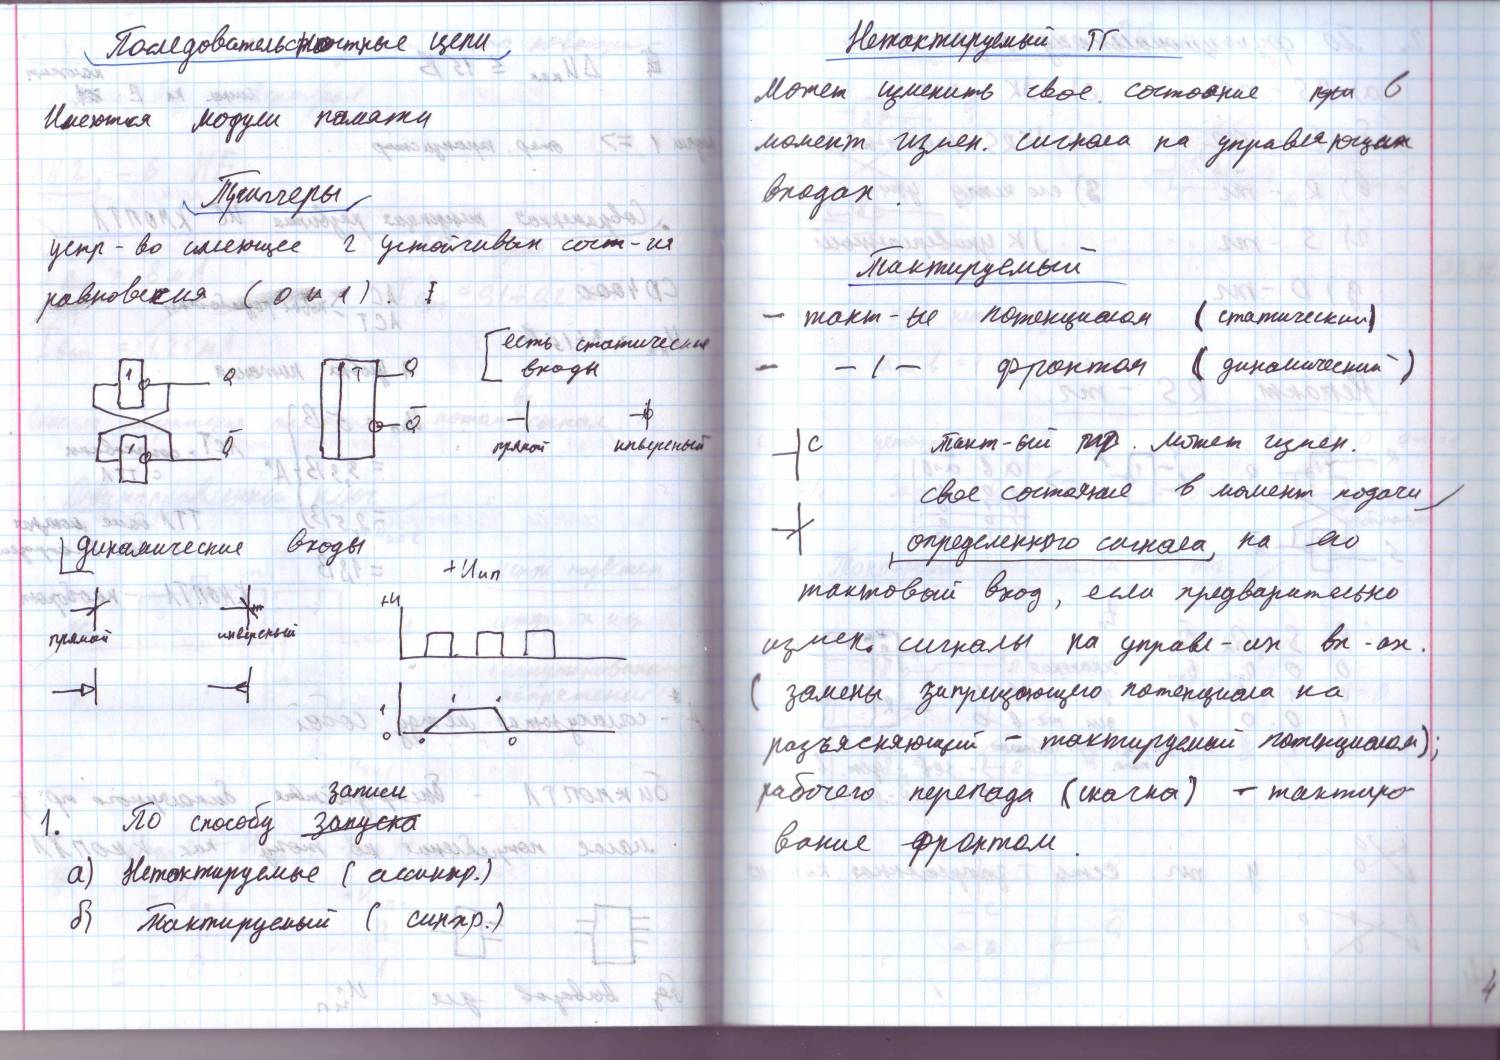 Последовательностные цепи
Имеются модули памяти
Триггеры
устр-во имеющее 2 устойчивых сост-ия
равновесия (0 и 1).
1 Q
1 Q̅
T Q
Q̅
есть статические
входы
прямой инверсный
динамические входы
прямой инверсный
+Uип
+U
1
0 0 0
записи
1. По способу запуска
а) Нетактируемые (асинхр.)
б) Тактируемый (синхр.)
Нетактируемый ТГ
Может изменить свое состояние при в
момент измен. сигнала на управляющих
входах.
Тактируемый
– такт-ые потенциалом (статический)
– –/– фронтом (динамический)
C такт-ый тр. может измен.
свое состояние в момент подачи
определенного сигнала на его
тактовый вход, если предварительно
измен. сигналы на управл-их вх-ах.
(замены запрещающего потенциала на
разъясняющий – тактируемый потенциалом);
рабочего перепада (скачка) – тактиро-
вание фронтом.
4